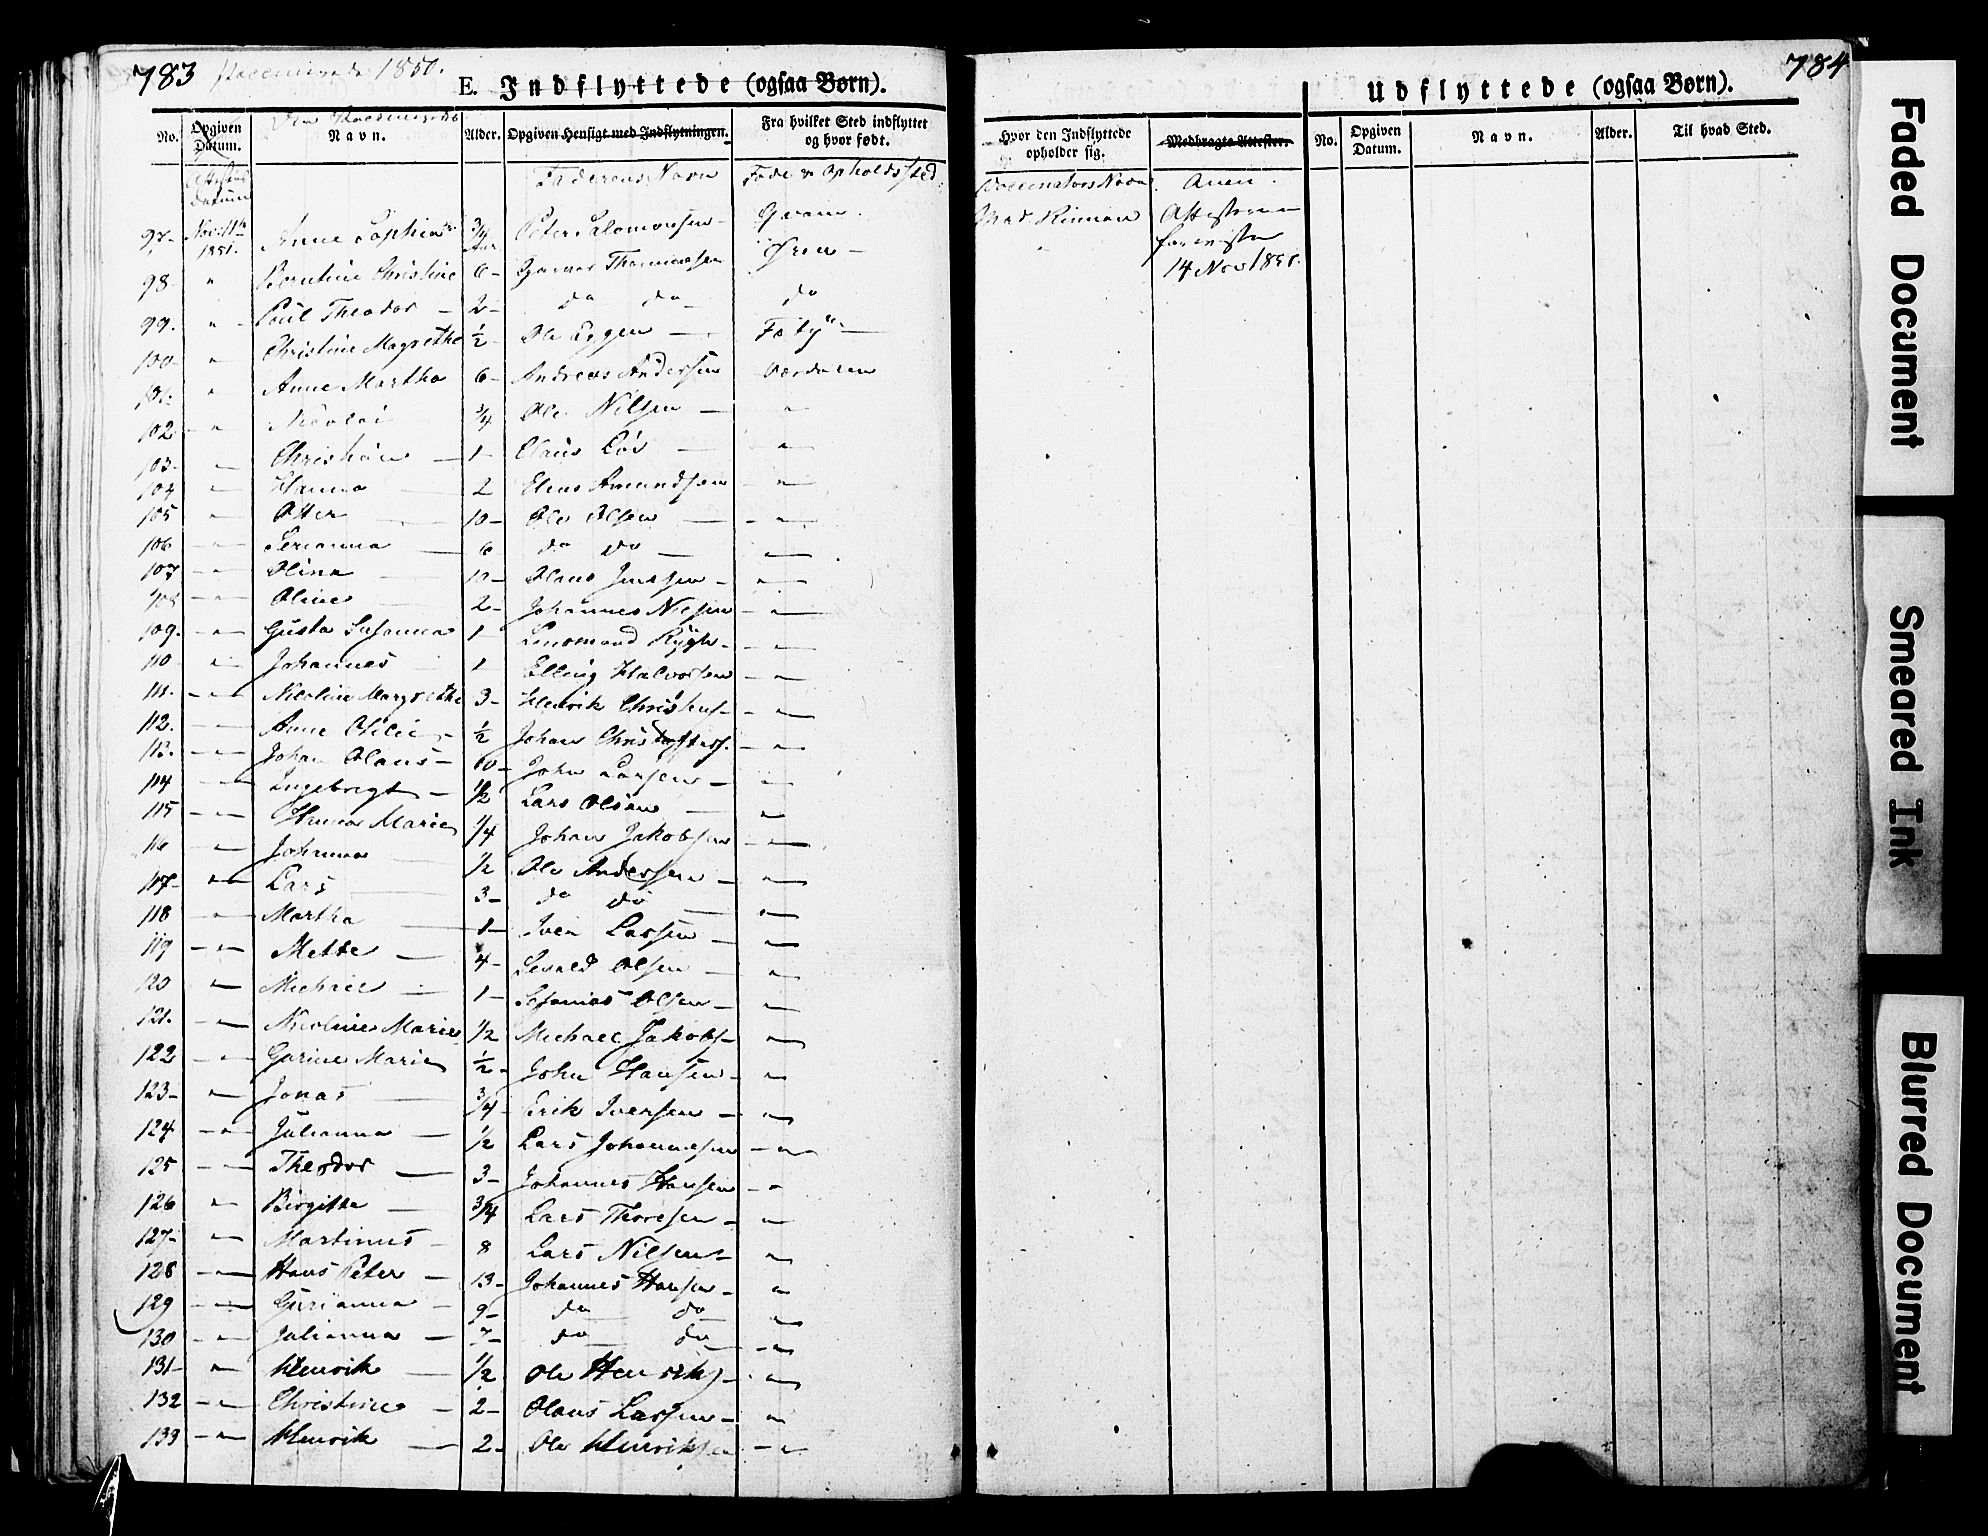 783 1851.
E. Indflyttede (ogsaa Børn).
No. Opgiven Datum. Navn. Alder. Opgiven Hensigt med Indflytningen. Fra hvilket Sted indflyttet og hvor født.
Datum Faderens Navn Føde og Opholdssted
97- Nov: 11te 1851. Anne Sophie 3/4 Aar Peter Salomonsen - Gram.
98 " Berntine Christine 6- Thomassen Øren -
99. " - Paul Theodor - 2- do do - do
100- " Christine Magrethe 1/2 - Ole Eggen - Fæby -
101- " Anne Martha 6- Andreas Andersen Værdalen
102 - " Nicolai 3/4 Ole Nilsen - "
103- " Christian - 1- Claus Løv "
104 " Hanna 2 Elias Amundsen - "
105 - " Otter 10- Ole Olsen - - "
106 - " Serianna 6 do do - "
107 - " Olina 10- Olaus Jensen - "
108 - " Oline 2- Johannes Nielsen - "
109. - " Gusta Susanna 1 Rygh - - "
110 - " Johannes 1 Elling Halvorsen - "
111. - " Nicoline Margrethe 3- Henrik Christens- - "
112. - " Anne Otilie - 1/2 Johan Christophers. - "
113. - " Johan Olaus - 10 - John Larsen - "
114 - " Ingebrigt - 1/2 Lars Olsen "
115 - " Hanna Marie 1/4 Johan Jakobsen - "
116 " Johanna 1/2 Ole Andersen - "
117- " Lars 3- do do "
118 - " Martha 1- Iver Larsen - "
119 - " Mette - 4- Sevald Olsen "
120 " Michael - 1- Olsen - "
121. - " Nicoline Marie 1/2 Michael Jakobs- "
122 - " Gurine Marie 1/2 - John Hansen - "
123- " Jonas 3/4 - Erik Iversen - "
124 - " Julianna - 1/2 Lars Johannesen - "
125 - " Theodor - 3- Johannes Hansen - "
126 " Birgitta - 3/4 Lars Thoresen - "
127- " Martinus - 8 Lars Nilsen - "
128 - " Hans Peter - 13- Johannes Hansen - "
129 - " Gurianna - 9- do do "
130 - " Julianna - 7- do do - "
131- " Henrik - 1/2 Ole Henriks- "
132 - " Christine - 2- Olaus Larsen - "
133 - " Henrik - 2- Ole Henriksen - "
784
Udflyttede (ogsaa Børn).
Hvor den Indflyttede opholder sig. Medbragte Attester. No. Opgiven Datum. Navn. Alder. Til hvad Sted.
Vaccinators Navn. Anm.
Mad Attesterne
14 Nov 1851.
Faded Document
Smeared Ink
Blurred Document